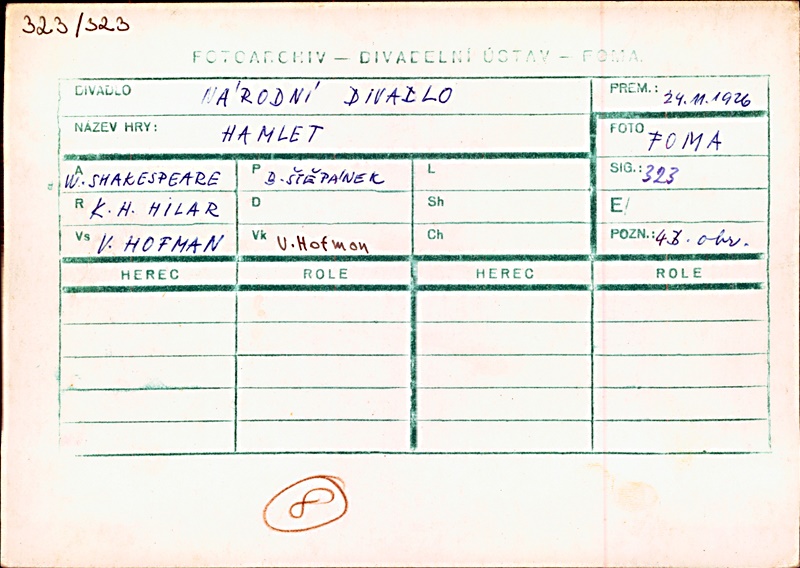 323/323
FOTOARCHIV – DIVADELNÍ ÚSTAV – FOMA
DIVADLO NÁRODNÍ DIVADLO PREM.: 24.11.1926
NÁZEV HRY: HAMLET FOTO FOMA
A W. SHAKESPEARE P B. ŠTĚPÁNEK L SIG.: 323
R K. H. HILAR D Sh E/
Vs V. HOFMAN Vk V. Hofman Ch POZN.: obr.
HEREC ROLE HEREC ROLE
8